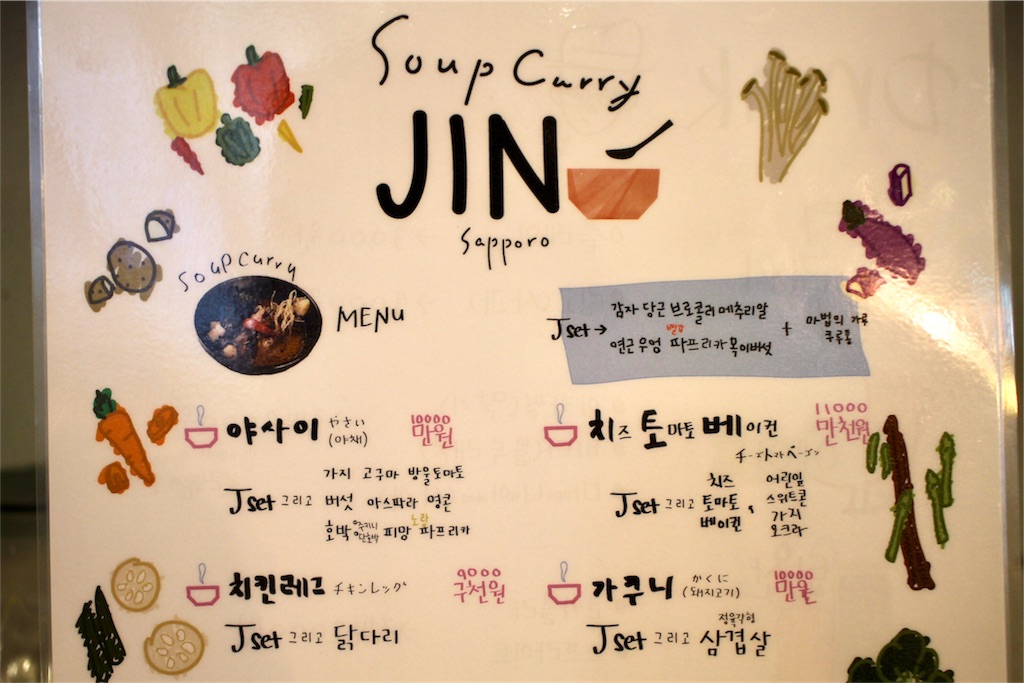 Soup Curry
JIN
Sapporo
Soup Curry
MENU
J set → 감자 당근 브로콜리 메추리알
연근 우엉 빨강 파프리카 목이버섯
+ 마법의 가루
쿠루통
야사이 やさい (야채) 10000 만원
J set 그리고
가지 고구마 방울토마토
버섯 아스파라 영콘
호박 피망 노랑 파프리카
치즈 토마토 베이컨 11000 만천원
J set 그리고
치즈
토마토
베이컨
,
어린잎
스위트콘
가지
오크라
치킨레그 チキンレッグ 9000 구천원
J set 그리고 닭다리
가쿠니 かくに (돼지고기) 10000 만원
J set 그리고 정육각형 삼겹살